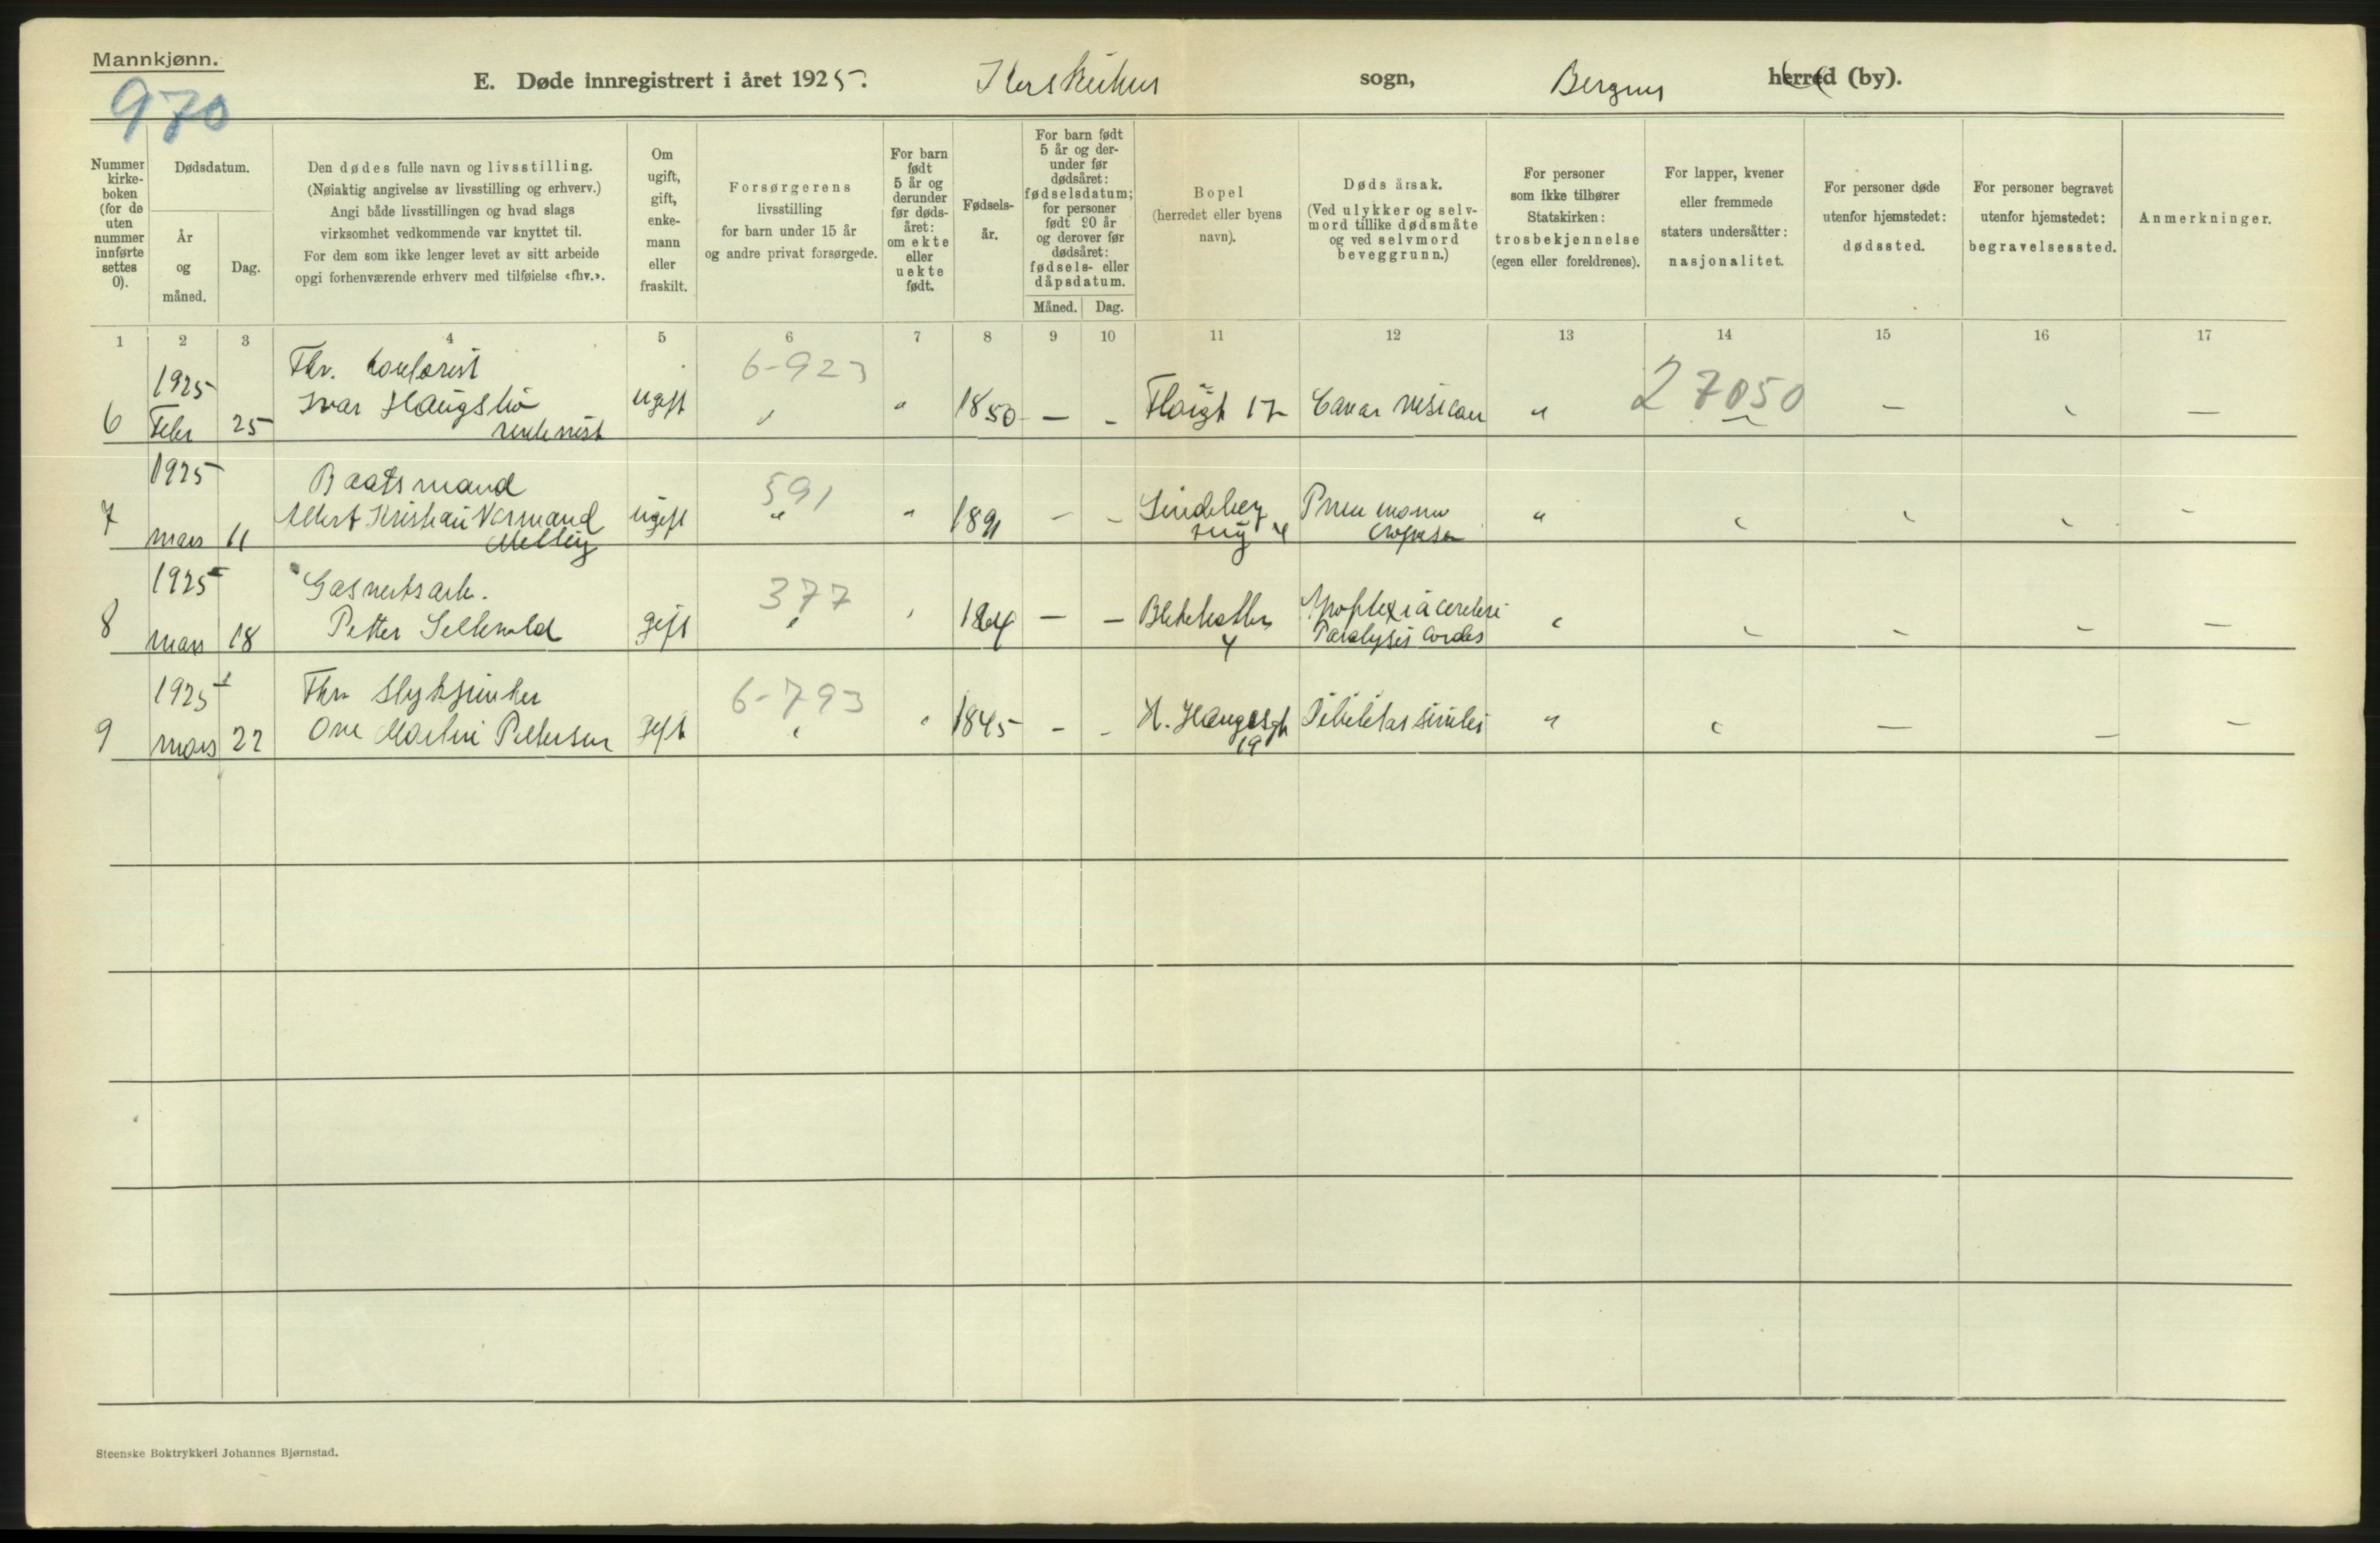 Mannkjønn.
970
E. Døde innregistrert i året 1925. Korskirkens sogn, Bergens herred (by).
Nummer kirke-boken (for de uten nummer innførte settes 0).
Dødsdatum.
År og måned.
Dag.
Den dødes fulle navn og livsstilling.
(Nøiaktig angivelse av livsstilling og erhverv.)
Angi både livsstillingen og hvad slags
virksomhet vedkommende var knyttet til.
For dem som ikke lenger levet av sitt arbeide
opgi forhenværende erhverv med tilføielse «fhv.».
Om ugift, gift, enke-mann eller fraskilt.
Forsørgerens
livsstilling
for barn under 15 år
og andre privat forsørgede.
For barn født 5 år og derunder før døds-året: om ekte eller uekte født.
Fødsels-år.
For barn født 5 år og der-under før dødsåret: fødselsdatum; for personer født 90 år og derover før dødsåret: fødsels- eller dåpsdatum.
Måned. Dag.
Bopel
(herredet eller byens navn).
Døds årsak.
(Ved ulykker og selv-mord tillike dødsmåte og ved selvmord beveggrunn.)
For personer som ikke tilhører Statskirken: trosbekjennelse (egen eller foreldrenes).
For lapper, kvener eller fremmede staters undersåtter: nasjonalitet.
For personer døde utenfor hjemstedet: dødssted.
For personer begravet utenfor hjemstedet: begravelsessted.
Anmerkninger.
1 2 3 4 5 6 7 8 9 10 11 12 13 14 15 16 17
1925 Fhv. 6-923
6 Febr 25 Ivar ugift " " 1850 — - 17 Cancer " 27050 — —
1925 Baatsmand 591
7 mars 11 Albert Kristian ugift " " 1891 - - "
4
1925 Gasverksarb. 377
8 mars 18 Petter Sellevold gift 1864 — — Apoplexia cerebri
4 Paralysis cordis
1925 Fhv 6-793
9 mars 22 Martin Pettersen gift 1845 - - H. Haugesgt Debilitas senilis " — — -
19
Steenske Boktrykkeri Johannes Bjørnstad.